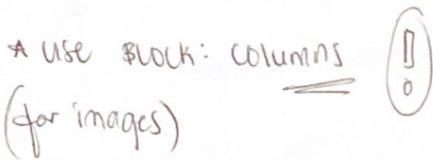 * use BLOCK: columns !
(for images)